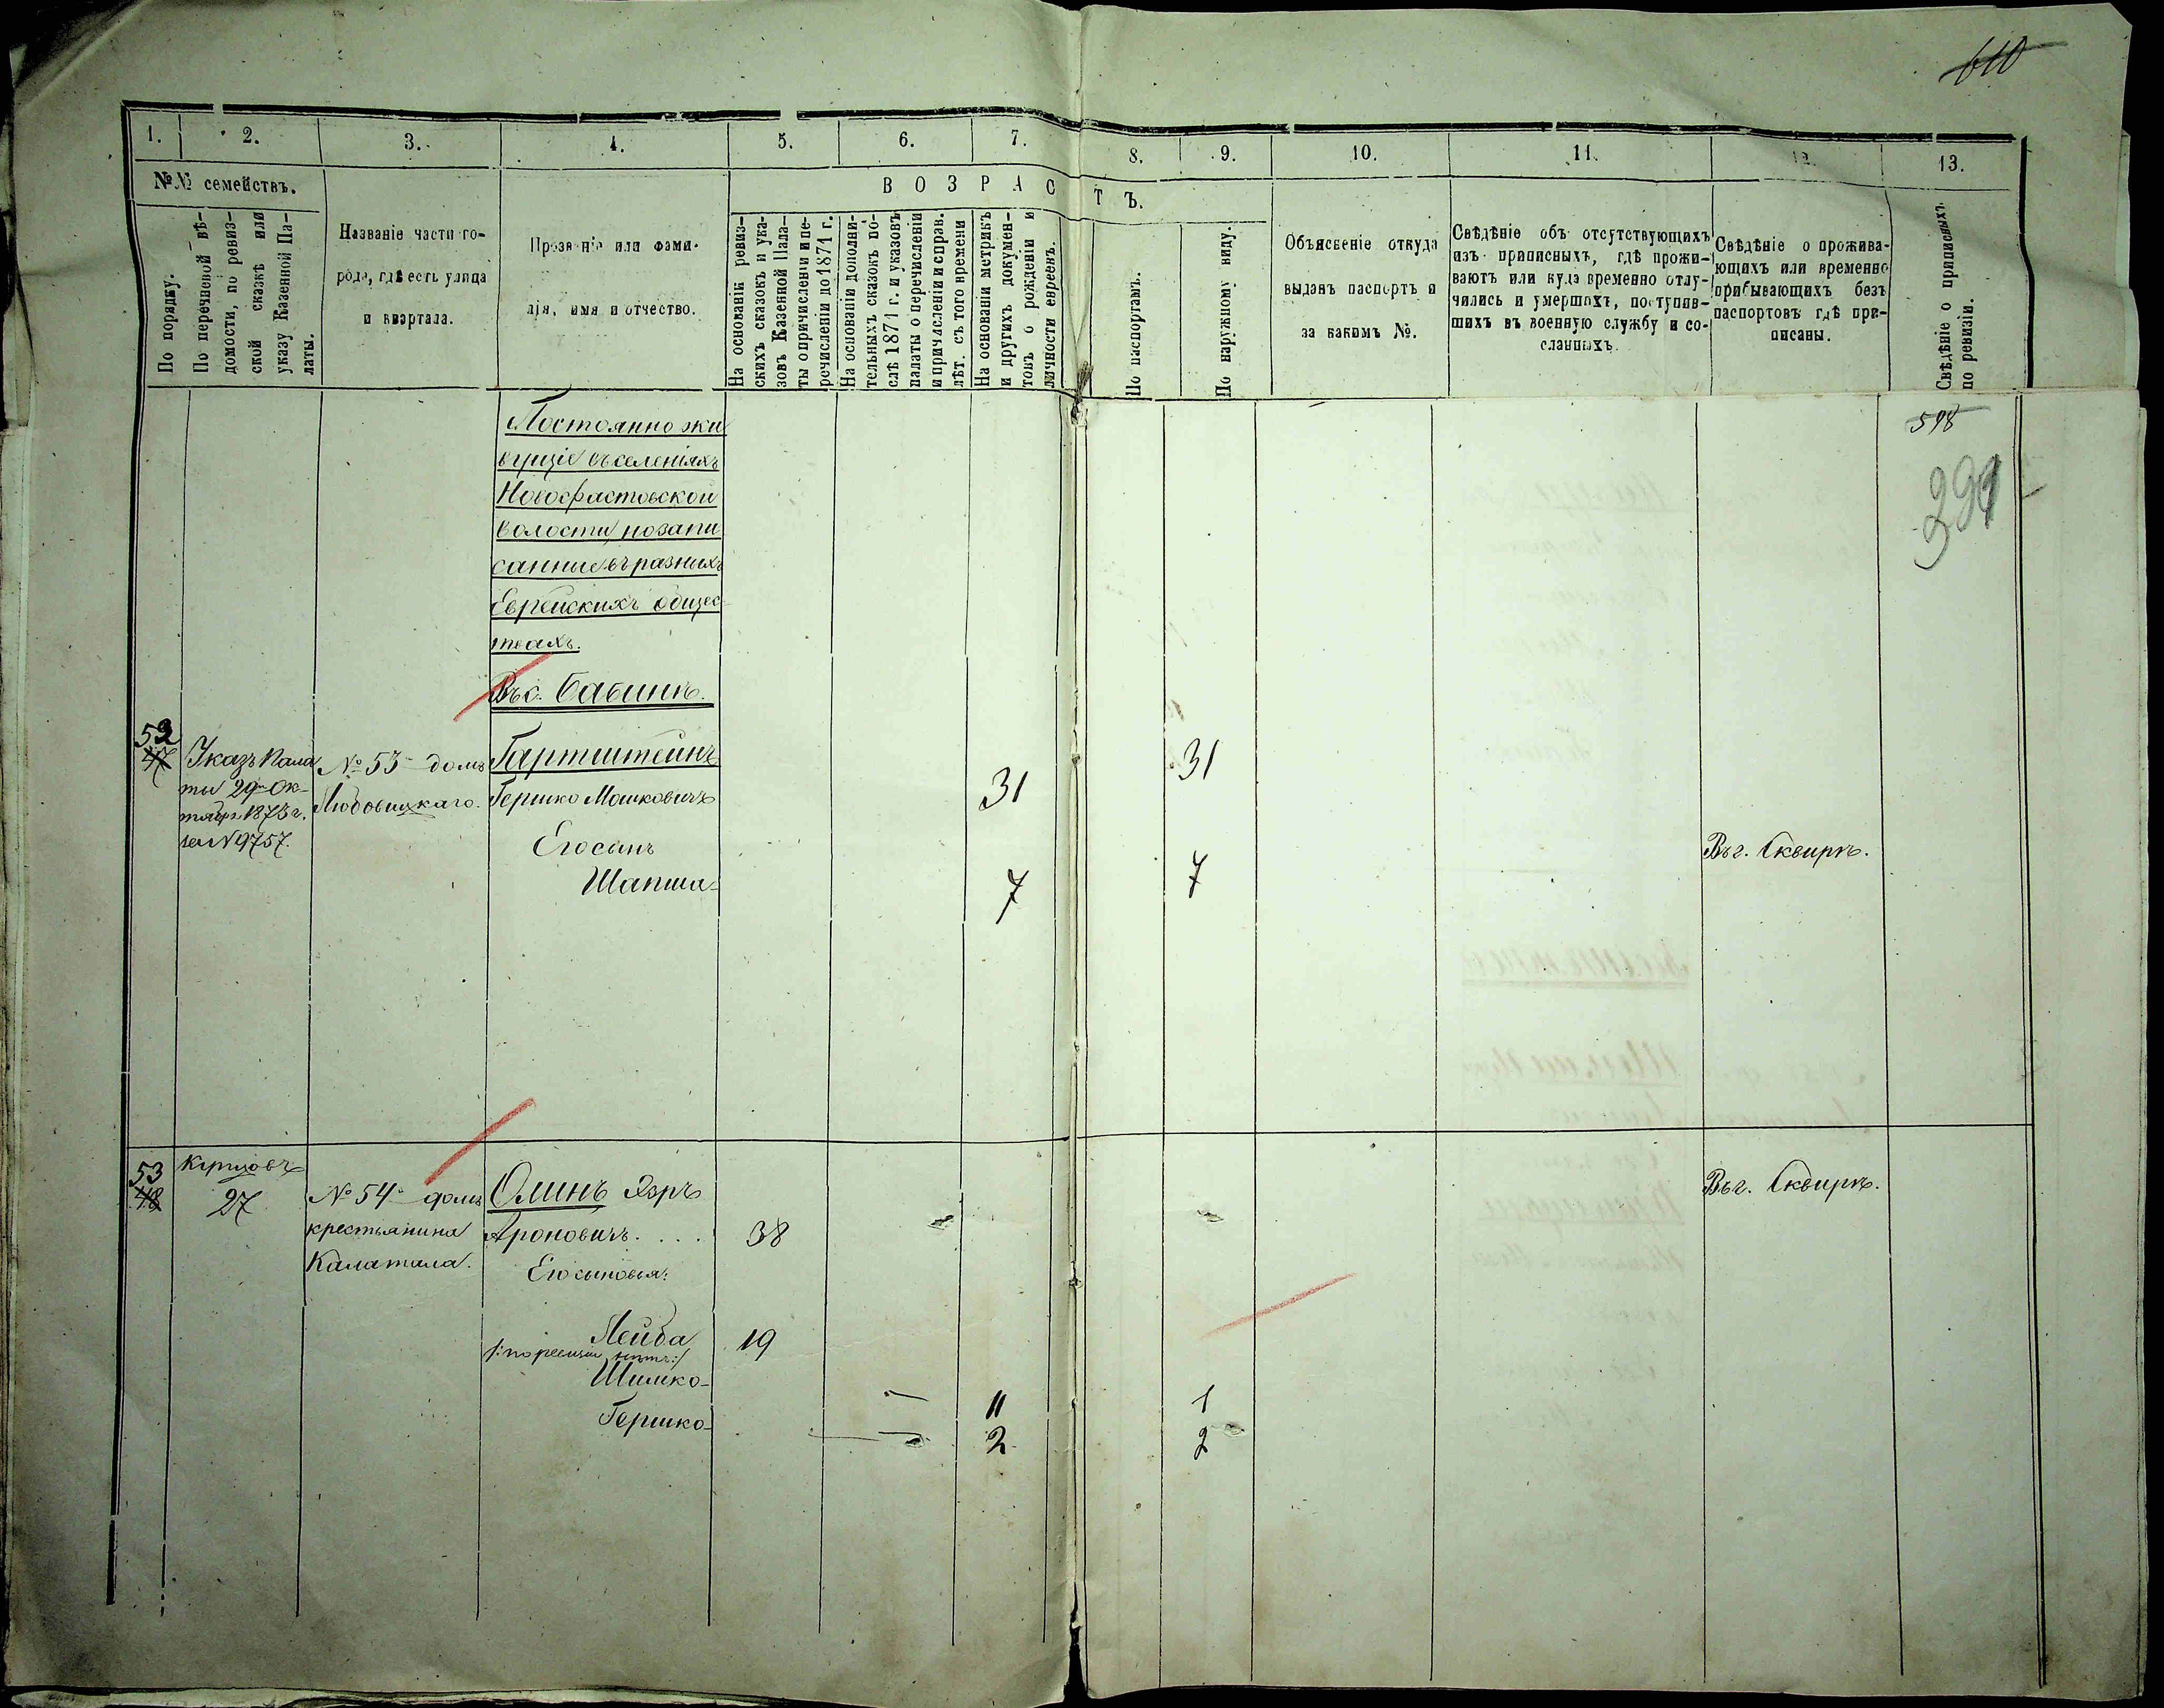 610
1. 2. 3. 4. 5. 6. 7. 8. 9. 10. 11. 12. 13.
№№ семействъ.
В О З Р А С Т Ъ.
По порядку.
По перечневой вѣ-
домости, по ревиз-
ской сказкѣ или
указу Казенной Па-
латы.
Названіе части го-
рода, гдѣ есть улица
и квартала.
Прозваніе или фами-
лія, имя и отчество.
На основаніи ревиз-
скихъ сказокъ и ука-
зовъ Казенной Пала-
ты о причисленіи и пе-
речисленіи до 1871 г.
На основаніи дополни-
тельныхъ сказокъ по-
слѣ 1871 г. и указовъ
палаты о перечисленіи
и причисленіи и справ.
лѣт. съ того времени
На основаніи метрикъ
и другихъ докумен-
товъ о рожденіи и
личности евреевъ.
По паспортамъ.
По наружному виду.
Объясненіе откуда
выданъ паспортъ и
за какимъ №.
Свѣдѣніе объ отсутствующихъ
изъ приписныхъ, гдѣ прожи-
ваютъ или куда временно отлу-
чились и умершихъ, поступив-
шихъ въ военную службу и со-
сланныхъ.
Свѣдѣніе о прожива-
ющихъ или временно
прибывающихъ безъ
паспортовъ гдѣ при-
писаны.
Свѣдѣніе о приписныхъ
по ревизіи.
598
Постоянно жи
вущіе въ селеніяхъ
Новофастовской
волости, но запи
санные въ разныхъ
Еврейскихъ общес
твахъ.
Въ с. Бабинѣ.
52
47
Указъ Пала
ты 29 Ок-
тября 1873 г.
за N 9757.
№ 53 домъ
Любовицкаго.
Гартштейнъ
Гершко Мошковичъ
31 31
Его сынъ
Шапша
7 7
Въ г. Сквирѣ.
53
48
27
№ 54 домъ
крестьянина
Каламала.
Олинъ Азръ
Ароновичъ. . . . 38
Его сыновья:
Лейба 19
/:по ревизіи нѣтъ:/
Шимко 11 1
Гершко 2 2
Въ г. Сквирѣ.